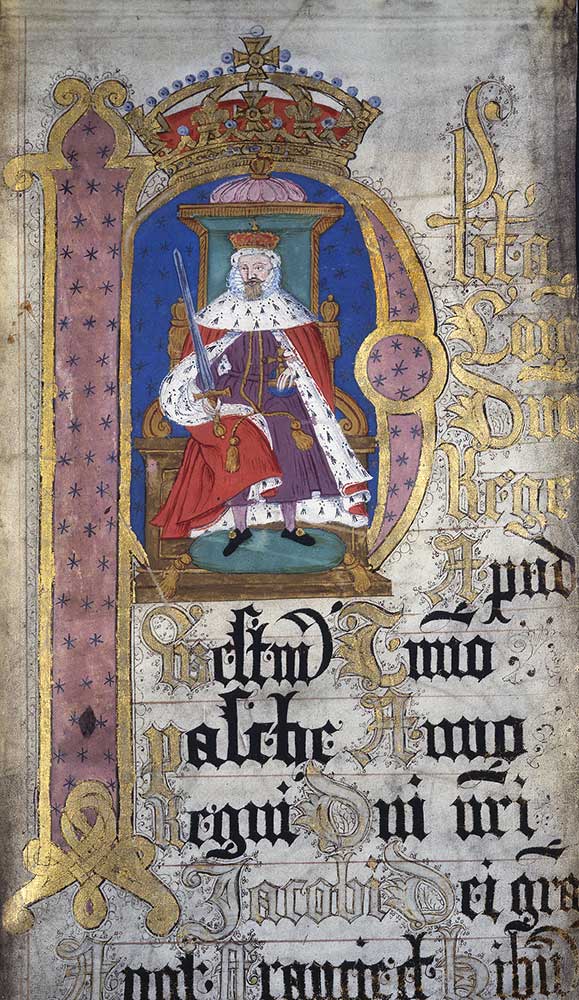 Plita
Cora
Dno
Rege
Apud
Westm Tmino
Pasche Anno
Regni Dni nri
Jacobi Dei gra
Angl Francie et Hib